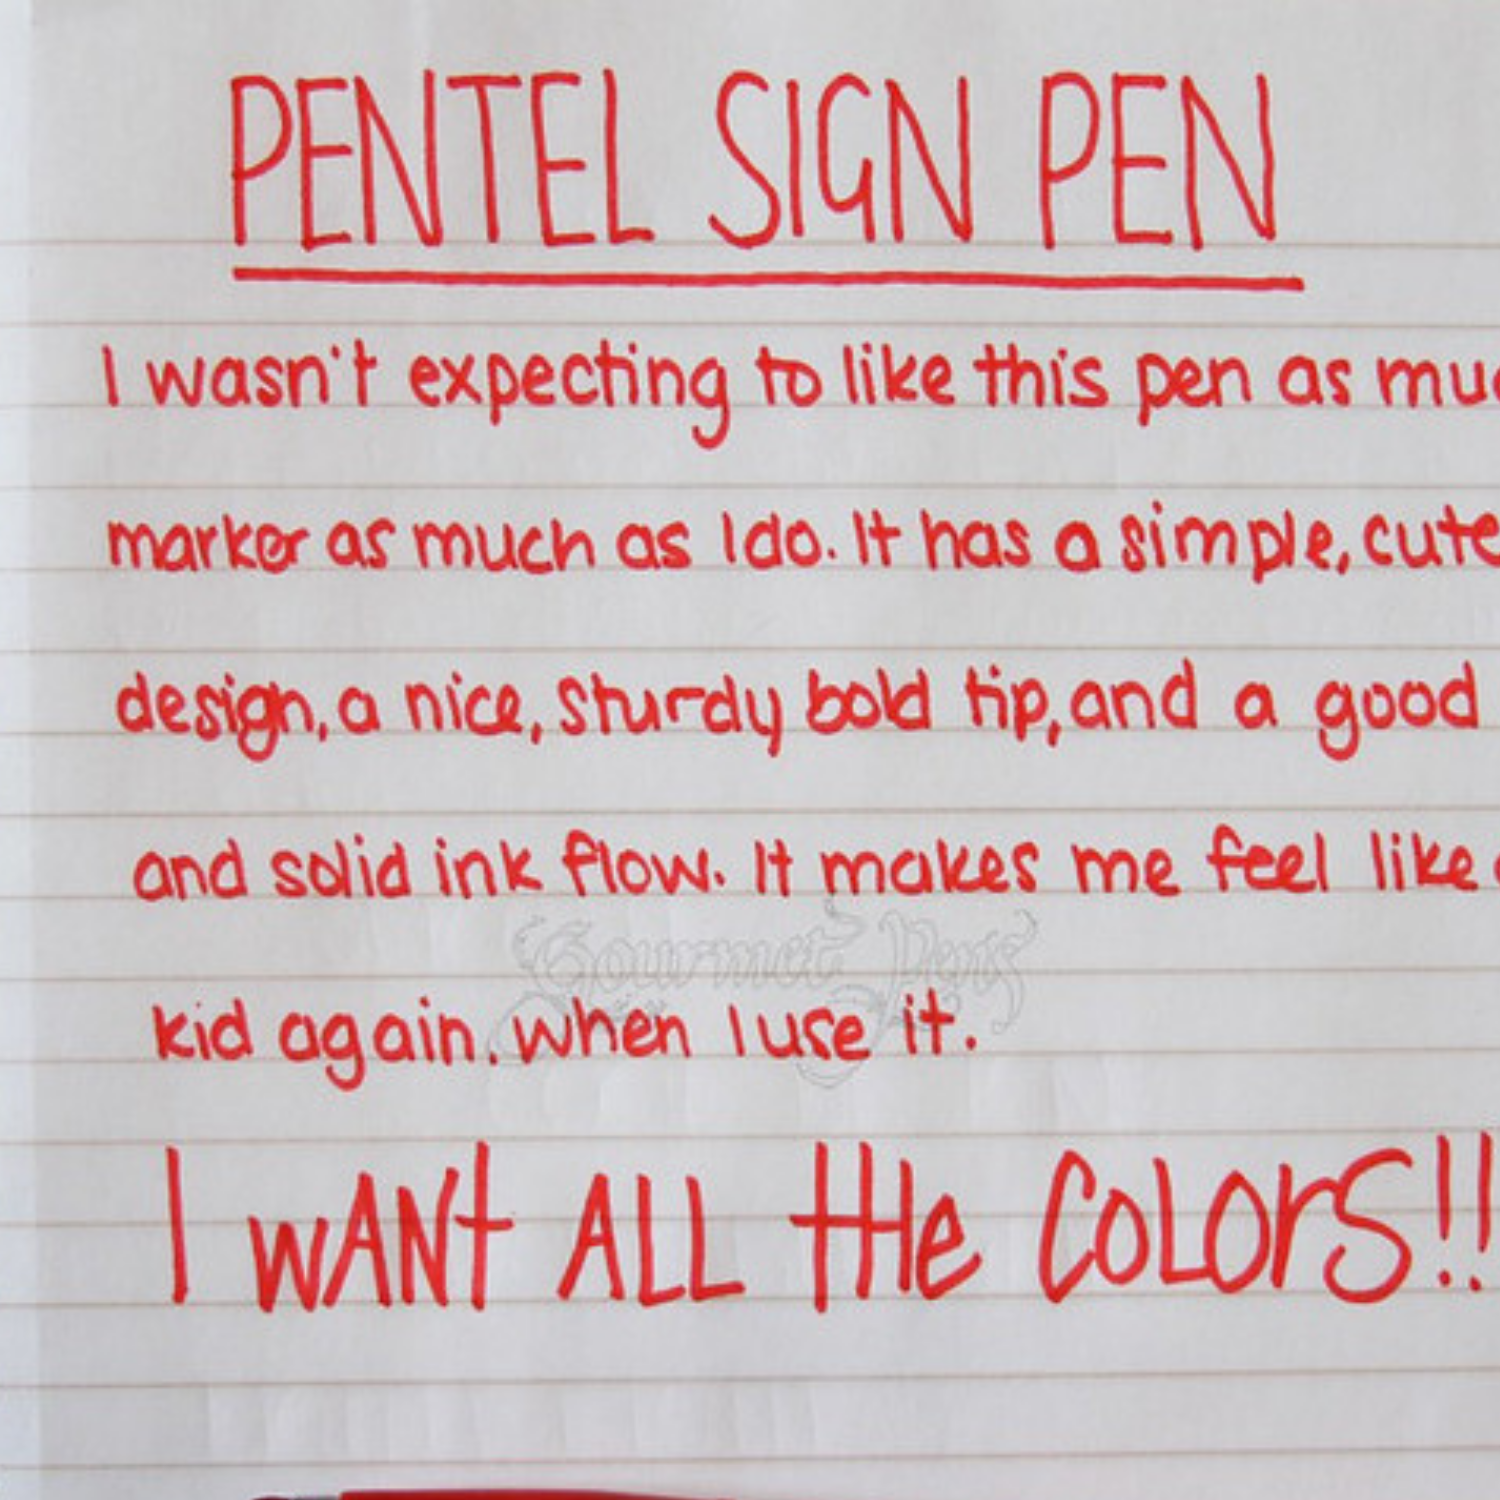 PENTEL SIGN PEN
I wasn't expecting to like this pen as
marker as much as I do. It has a simple, cute
design, a nice, sturdy bold tip, and a good
and solid ink flow. It makes me feel like
Gourmet Pens
kid again. when I use it.
I WANT ALL tHe COLOrS!!